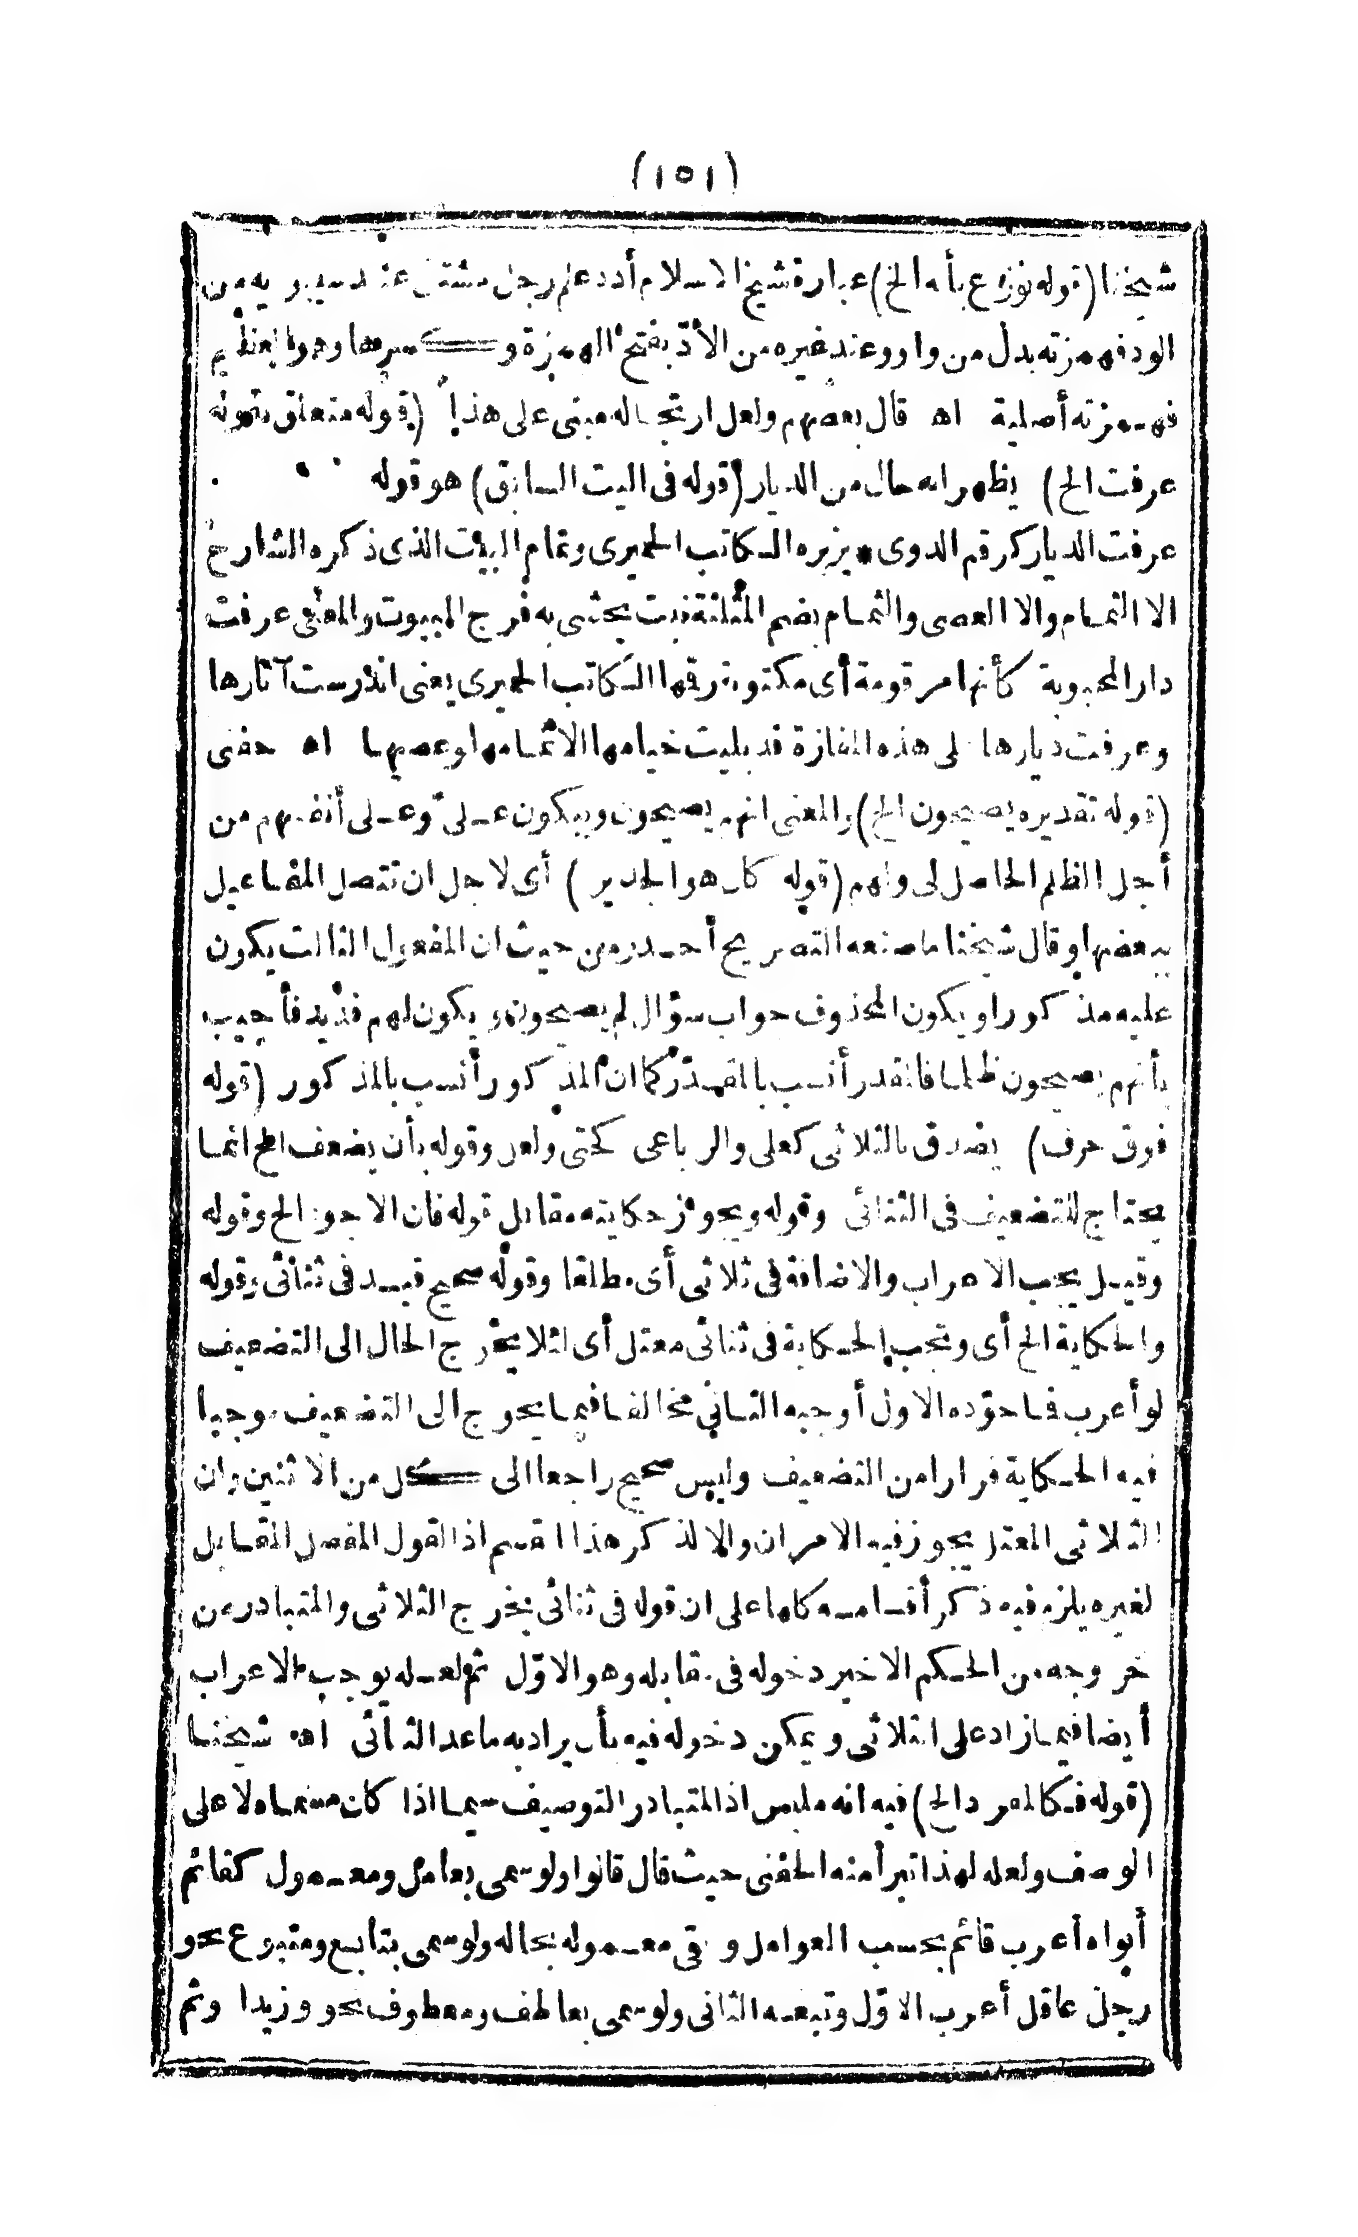 (١٥١)
شيخنا (قوله نوزع بأنه الخ) عبارة شيخ الاسلام أدد علم رجل مشتق عند سيبويه من
الود فهمزته بدل من واو وعند غيره من الأدّ بفتح الهمزة وكسرها وهو العظيم
فهمزته أصلية اه قال بعضهم ولعل ارتجاله مبنى على هذا (قوله متعلق بتموله
عرفت الخ) يظهر انه حال من الديار (قوله فى البيت السابق) هو قوله
عرفت الديار كرقم الدوى • يزبره الكاتب الحميرى وتمام البيت الذى ذكره الشارح
الا الثمام والا العصى والثمام بضم المثلثة نبت يحشى به فرج البيوت والمعنى عرفت
دار المحبوبة كأنها مرقومة أى مكتوبة رقمها الكاتب الحميرى يعنى اندرست آثارها
وعرفت ديارها لى هذه المفازة قد بليت خيامها الا ثمامها وعصيها اه حفنى
(قوله تقديره يصيحون الخ) والمعنى انهم يصيحون ويبكون على وعلى أنفسهم من
أجل الظلم الحاصل لى ولهم (قوله كان هو الجدير) أى لاجل ان تتصل المفاعيل
ببعضها وقال شيخنا ما صنعه التصريح أجدر من حيث ان المفعول الثالث يكون
عليه مذكورا ويكون المحذوف جواب سؤال لم يصيحون ويكون لهم فديد فأجيب
بأنهم يصيحون ظلما فالمقدر أنسب بالمقدّر كما ان المذكور أنسب بالمذكور (قوله
فوق حرف) يصدق بالثلاثى كعلى والرباعى كحتى ولعل وقوله بأن يضعف الخ انما
يحتاج للتضعيف فى الثنائى وقوله ويجوز حكايته مقابل قوله فان الاجود الخ وقوله
وقيل يجب الاعراب والاضافة فى ثلاثى أى مطلقا وقوله صحيح قيد فى ثنائى وقوله
والحكاية الخ أى وتجب الحكاية فى ثنائى معتل أى لئلا يخرج الحال الى التضعيف
لو أعرب فما جوّده الاول أوجبه الثانى مخالفا فيما يحوج الى التضعيف موجبا
فيه الحكاية فرارا من التضعيف وليس صحيح راجعا الى كل من الاثنين وان
الثلاثى المعتل يجوز فيه الامران والا لذكر هذا القسم اذ القول المفصل المقابل
لغيره يلزم فيه ذكر أقسامه كلها على ان قوله فى ثنائى يخرج الثلاثى والمتبادر من
خروجه من الحكم الاخير دخوله فى مقابله وهو الاوّل ثم لعله يوجب الاعراب
أيضا فيما زاد على الثلاثى ويمكن دخوله فيه بأن يراد به ما عدا الثنائى اه شيخنا
(قوله فكالمفرد الخ) فيه انه ملبس اذ المتبادر التوصيف سيما اذا كان مسماه لا على
الوصف ولعله لهذا تبرأ منه الحفنى حيث قال قالوا ولو سمى بعامل ومعمول كقائم
أبواه أعرب قائم بحسب العوامل وبقى معموله بحاله ولو سمى بتابع ومتبوع نحو
رجل عاقل أعرب الاوّل وتبعه الثانى ولو سمى بعاطف ومعطوف نحو وزيدا وثم